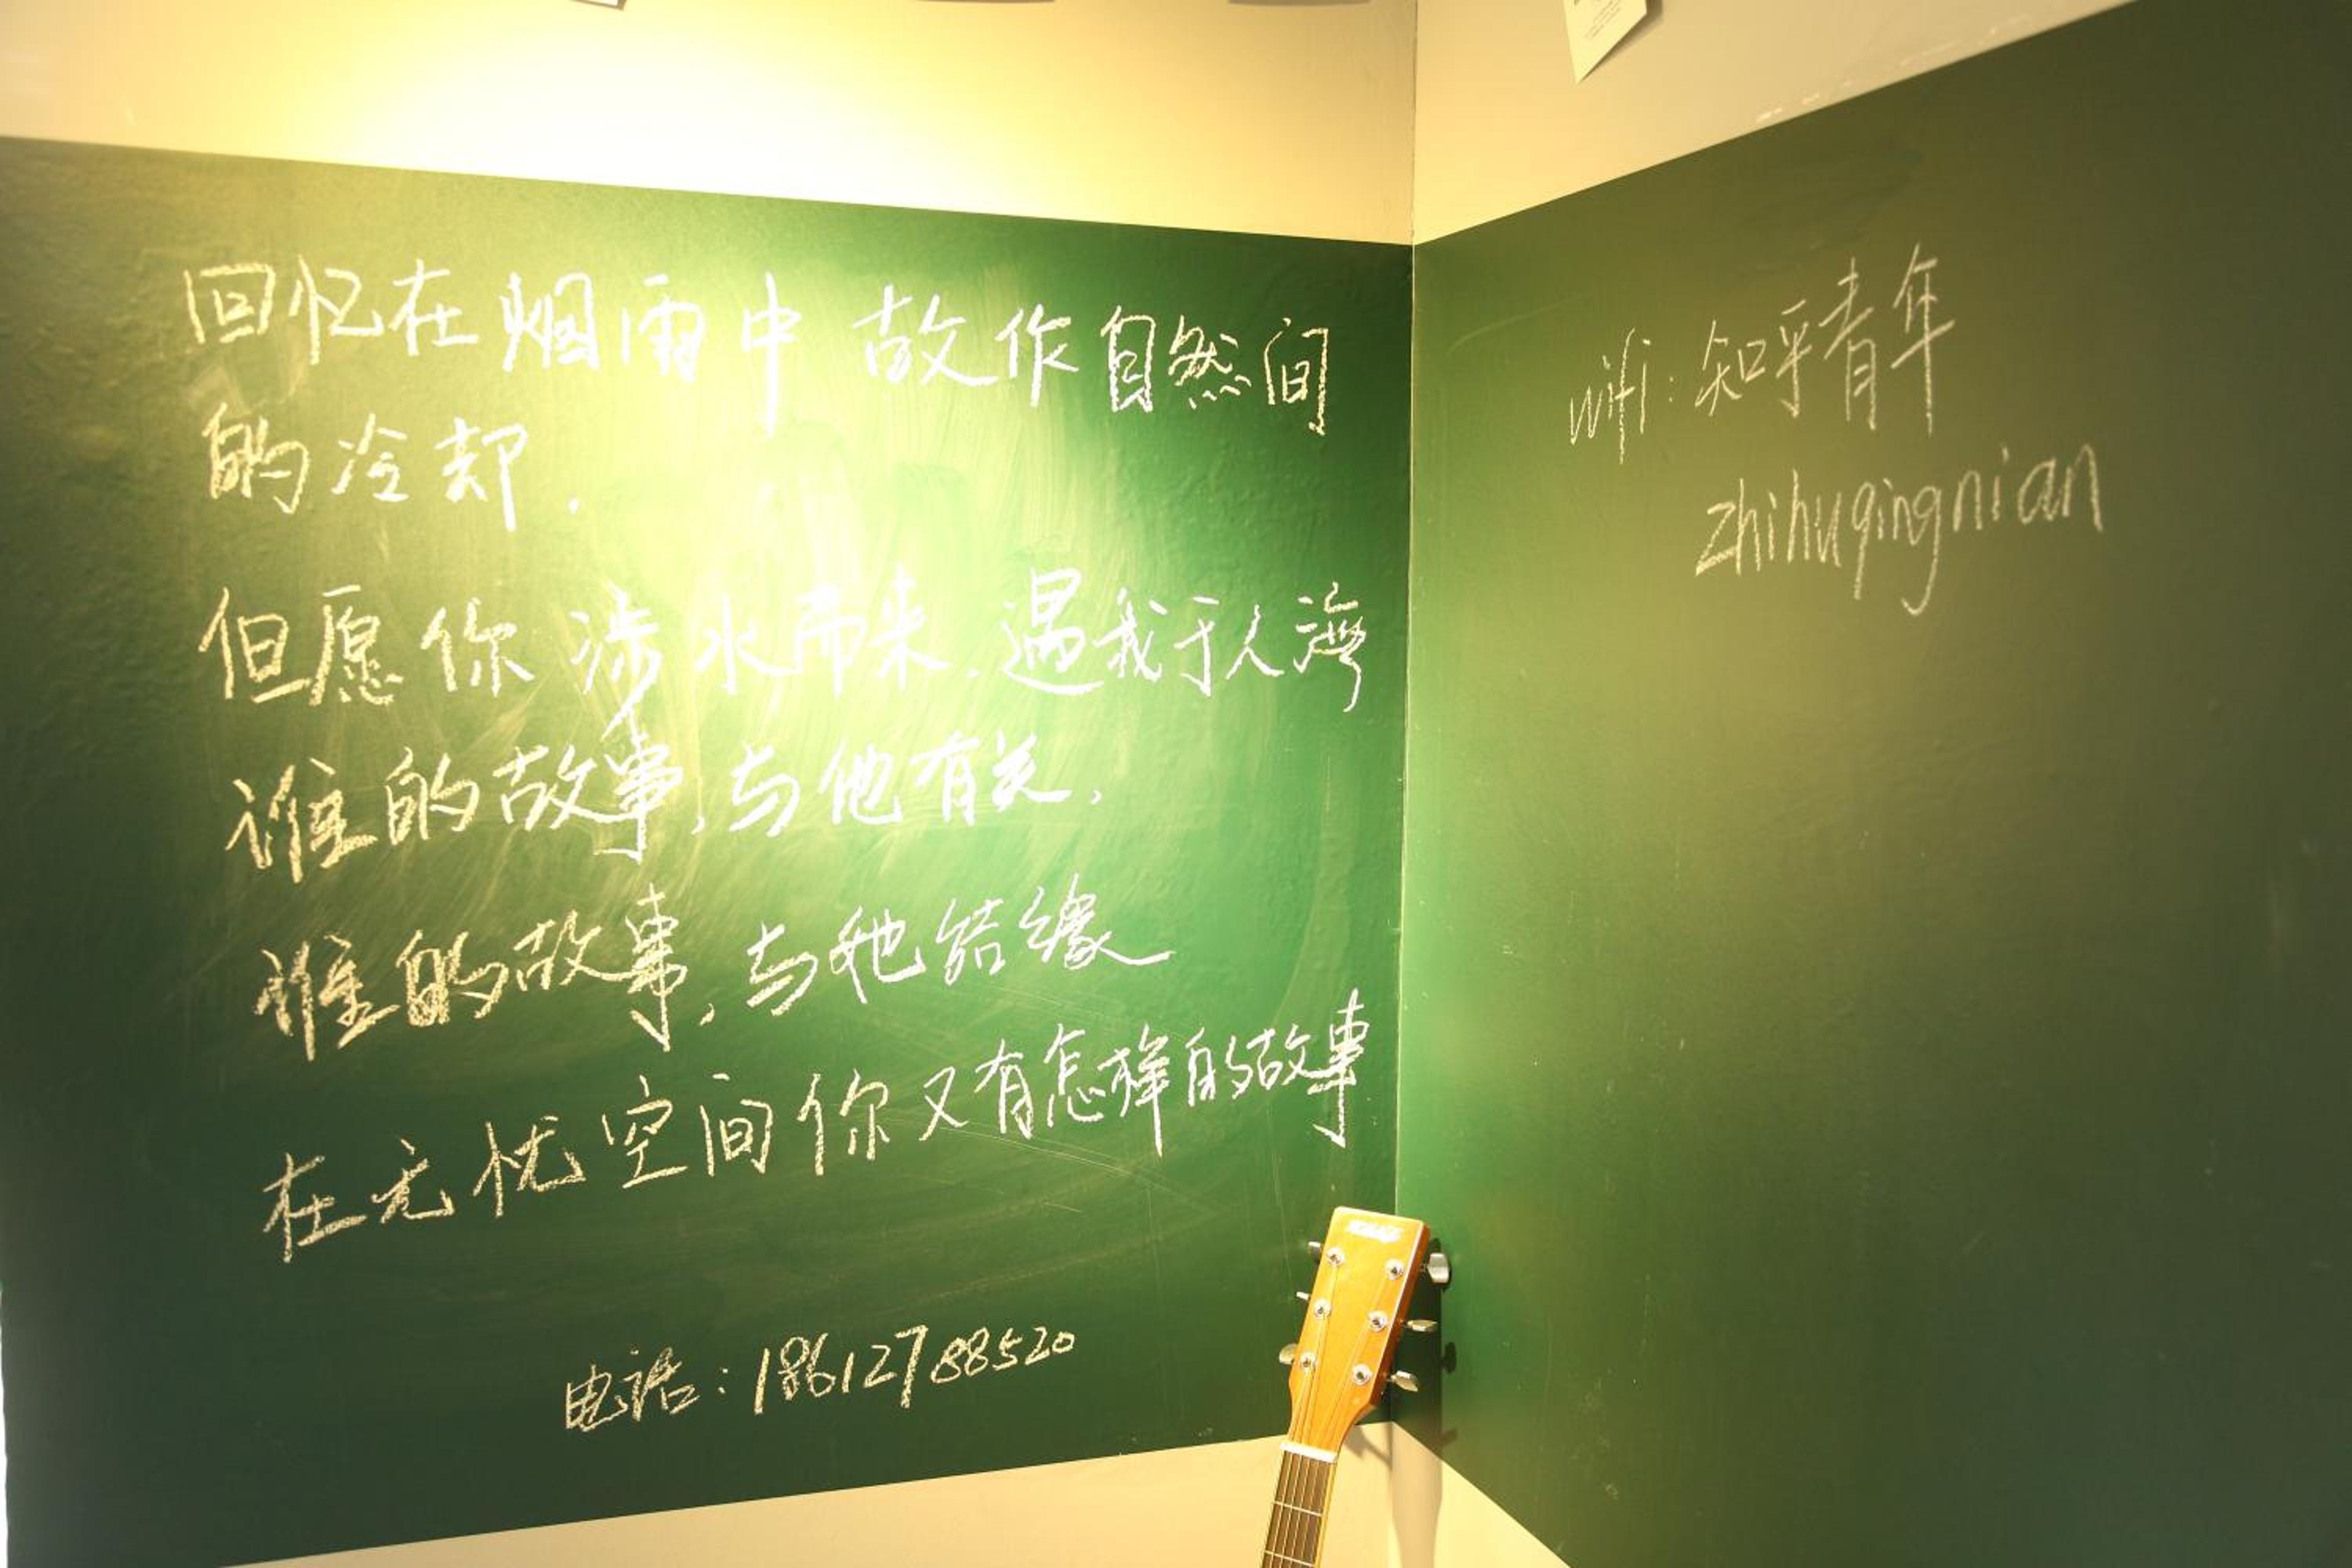 回忆在烟雨中 故作自然间
的冷却.
但愿你涉水而来.遇我于人海
谁的故事,与他有关,
谁的故事,与她结缘
在无忧空间你又有怎样的故事
电话:18612788520
wifi:知乎青年
zhihuqingnian